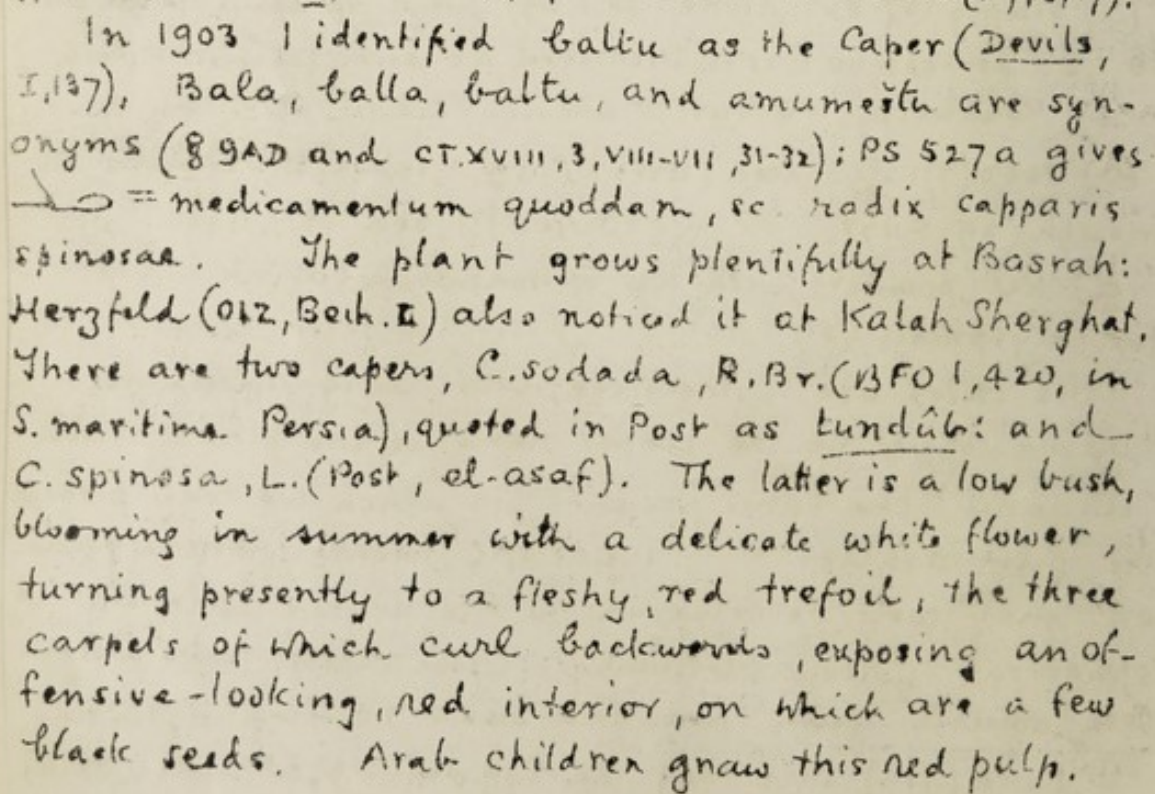 In 1903 I identified baltu as the Caper (Devils,
I,137), Bala, balla, baltu, and amumeštu are syn-
onyms (§ 9AD and CT.XVIII,3,VIII-VII,31-32); PS 527a gives
= medicamentum quoddam, sc. radix capparis
spinosae. The plant grows plentifully at Basrah:
Herzfeld (OLZ, Beih. II) also noticed it at Kalah Sherghat.
There are two capers, C. sodada, R.Br. (BFO 1,420, in
S. maritima Persia), quoted in Post as tundûb: and
C. spinosa, L. (Post, el-asaf). The latter is a low bush,
blooming in summer with a delicate white flower,
turning presently to a fleshy, red trefoil, the three
carpels of which curl backwards, exposing an of-
fensive-looking, red interior, on which are a few
black seeds. Arab children gnaw this red pulp.